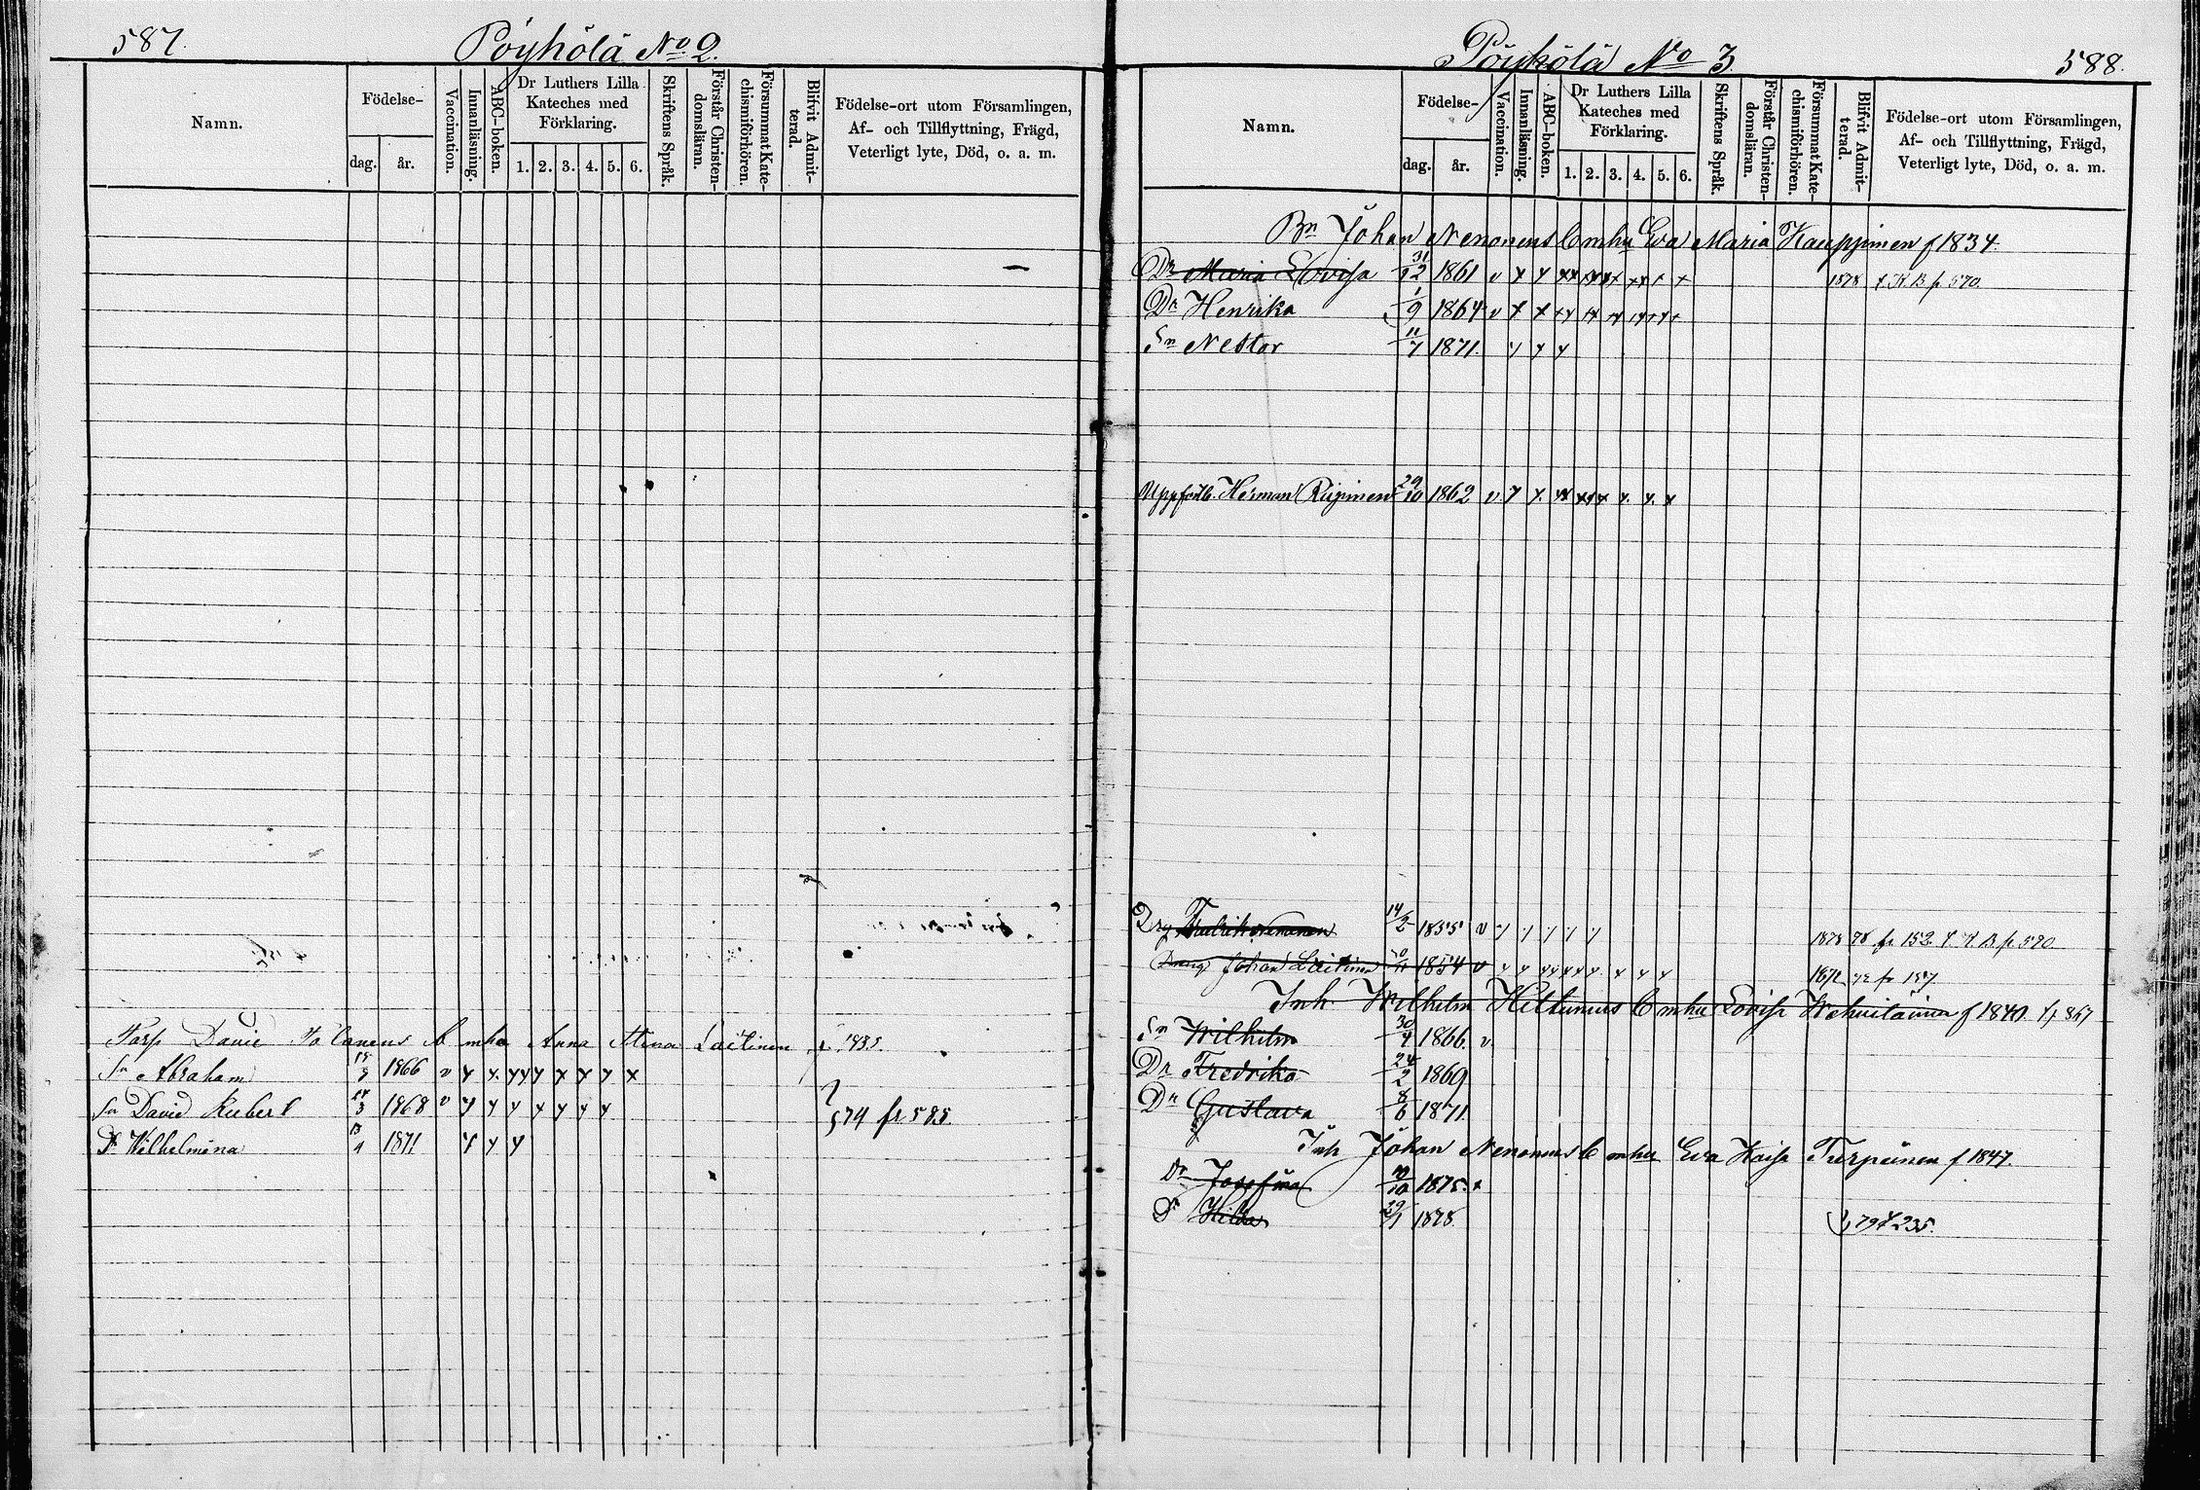 587.
Pöyhölä No 2.
Namn.
Födelse-
dag. år.
Vaccination.
Innanläsning.
ABC-boken.
Dr Luthers Lilla Kateches med Förklaring.
1. 2. 3. 4. 5. 6.
Skriftens Språk.
Förstår Christendomsläran.
Försummat Katechismiförhören.
Blifvit Admitterad.
Födelse-ort utom Församlingen,
Af- och Tillflyttning, Frägd,
Veterligt lyte, Död, o. a. m.
Torp David Anna Stina Laitinen f. 1835.
Sn Abraham 1866 v
Sn David Rubert 1868 v
574 fr 585.
Dr Wilhelmina 1871
Pöyhölä No 3
588.
Namn.
Födelse-
dag. år.
Vaccination.
Innanläsning.
ABC-boken.
Dr Luthers Lilla
Kateches med
Förklaring.
1. 2. 3. 4. 5. 6.
Skriftens Språk.
Förstår Christendomsläran.
Försummat Katechismiförhören.
Blifvit Admitterad.
Födelse-ort utom Församlingen,
Af- och Tillflyttning, Frägd,
Veterligt lyte, Död, o. a. m.
Bn Johan Nenonens Enka Eva Maria Kauppinen f 1834.
Dr Maria Lovisa 31/12 1861 v 1878 f. K B p 570.
Dr Henrika 1/9 1864 v
Sn Nestor 11/7 1871.
Uppfostr. Herman Riipinen 29/10 1862 v.
Drg Fredrik Nenonen 14/2 1855 v 1878 78 fr 152 f. K B p 570
Dräng Johan Laitinen 1854 v fr 157.
Inh. Wilhelm Hiltunens Lovisa f 1840.
Sn Wilhelm 30/4 1866. v.
Dr Fredrika 24/2 1869
Dr Gustava 8/6 1871
Inh Johan Nenonens Eva Kaisa Turpeinen f 1847.
Dr Josefina 1875.
Dr Hilda 29/1 1878. 79 f 235.